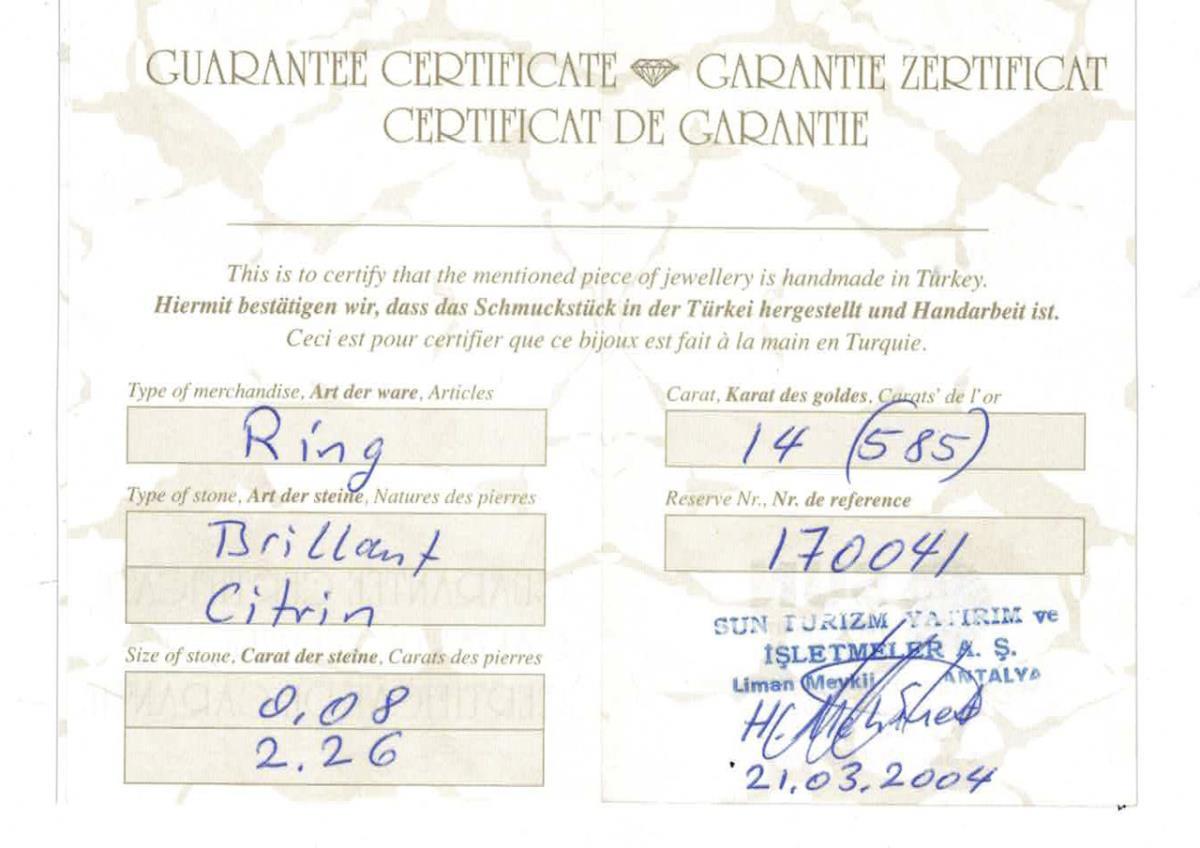 GUARANTEE CERTIFICATE GARANTIE ZERTIFICAT
CERTIFICAT DE GARANTIE
This is to certify that the mentioned piece of jewellery is handmade in Turkey.
Hiermit bestätigen wir, dass das Schmuckstück in der Türkei hergestellt und Handarbeit ist.
Ceci est pour certifier que ce bijoux est fait à la main en Turquie.
Type of merchandise, Art der ware, Articles
Ring
Type of stone, Art der steine, Natures des pierres
Brillant
Citrin
Size of stone, Carat der steine, Carats des pierres
0,08
2.26
Carat, Karat des goldes, Carats' de l'or
14 (585)
Reserve Nr., Nr. de reference
170041
SUN TURIZM YATIRIM ve
İŞLETMELER A. Ş.
Liman Mevkii ANTALYA
21.03.2004